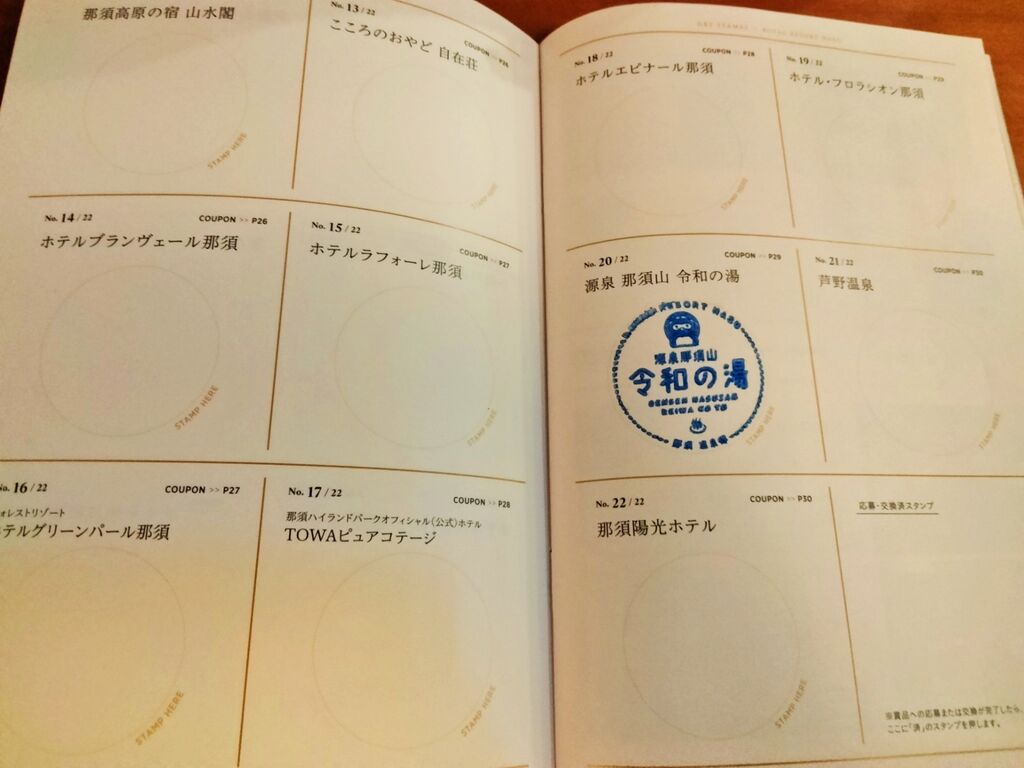 那須高原の宿 山水閣
STAMP HERE
No. 13 / 22
COUPON >> P26
こころのおやど 自在荘
STAMP HERE
No. 14 / 22
COUPON >> P26
ホテルブランヴェール那須
STAMP HERE
No. 15 / 22
COUPON >> P27
ホテルラフォーレ那須
STAMP HERE
No. 16 / 22
COUPON >> P27
ォレストリゾート
テルグリーンパール那須
STAMP HERE
No. 17 / 22
COUPON >> P28
那須ハイランドパークオフィシャル(公式)ホテル
TOWAピュアコテージ
STAMP HERE
No. 18 / 22
COUPON >> P28
ホテルエピナール那須
STAMP HERE
No. 19 / 22
COUPON >> P29
ホテル・フロラシオン那須
STAMP HERE
No. 20 / 22
COUPON >> P29
源泉 那須山 令和の湯
RESORT NASU
源泉那須山
令和の湯
GENSEN NASUSAN
REIWA NO YU
STAMP HERE
No. 21 / 22
COUPON >> P30
芦野温泉
STAMP HERE
No. 22 / 22
COUPON >> P30
那須陽光ホテル
STAMP HERE
応募・交換済スタンプ
※賞品への応募または交換が完了したら、
ここに「済」のスタンプを押します。